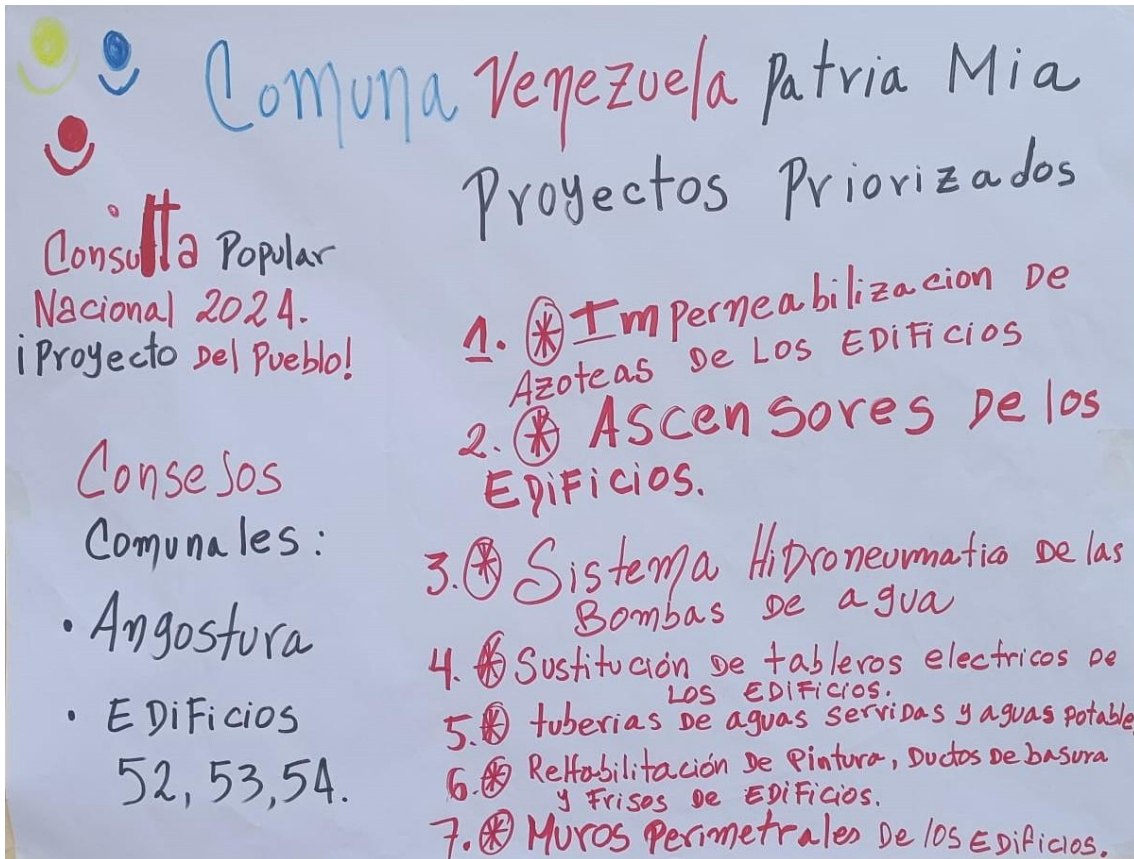 Comuna Venezuela Patria Mia
Proyectos Priorizados
Consulta Popular
Nacional 2024.
¡Proyecto Del Pueblo!
Consejos
Comunales:
• Angostura
• EDiFicios
52, 53, 54.
1. * Impermeabilizacion De
Azoteas De Los EDiFicios
2. * Ascensores De los
EDiFicios.
3. * Sistema HiDroneumatico De las
Bombas De agua
4. * Sustitución De tableros electricos De
Los EDiFicios.
5. * tuberias De aguas serviDas y aguas potable
6. * ReHabilitación De Pintura, Ductos De basura
y Frisos De EDiFicios.
7. * Muros Perimetrales De los EDificios.